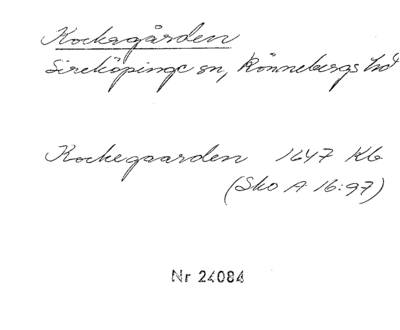 Kockagården
Sireköpinge sn, Rönnebergs hd
Kockegaarden 1647 Kb
(Sko A 16:97)
Nr 24084